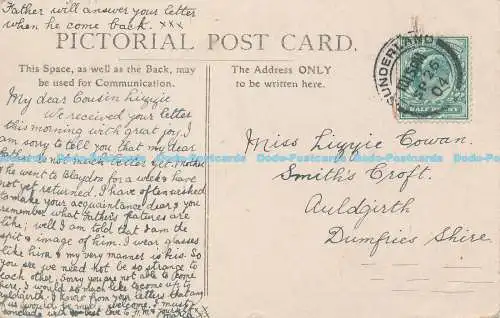 Father will answer your letter
when he come back. xxx
PICTORIAL POST CARD.
This Space, as well as the Back, may
be used for Communication.
The Address ONLY
to be written here.
My dear Cousin Lizzie
We received your letter
this morning with great joy. I
am sorry to tell you that my dear
is not much better yet. Mother
& he went to Blaydon for a week & have
not yet returned. I have often wished
to make your acquaintance dear & you
remember what Father's features are
like; well I am told that I am the
spit & image of him. I wear glasses
like him & my very manner is his. So
you see we need not be so strange to
each other. Sorry you are not able to come
here. I would so much like to come up to
Auldgirth. I know from your letters that
us would be most welcome. I must
conclude with best love to
SUNDERLAND
SP 26
04
HALF PENNY
Miss Lizzie Cowan.
Smith's Croft.
Auldgirth
Dumfries Shire.
Dodo-Postcards Dodo-Postcards Dodo-Postcards Dodo-Postcards Dodo-Postcards